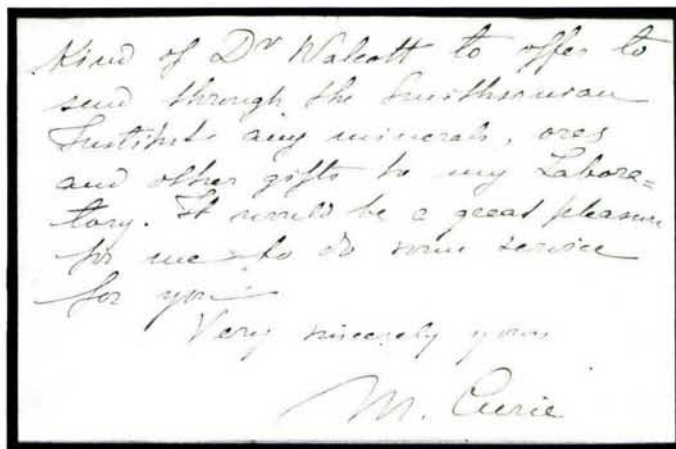 kind of Dr Walcott to offer to
send through the Smithsonian
Institute any minerals, ores
and other gifts to my Labora=
tory. It would be a great pleasure
for me to do some service
for you
Very sincerely yours
M. Curie